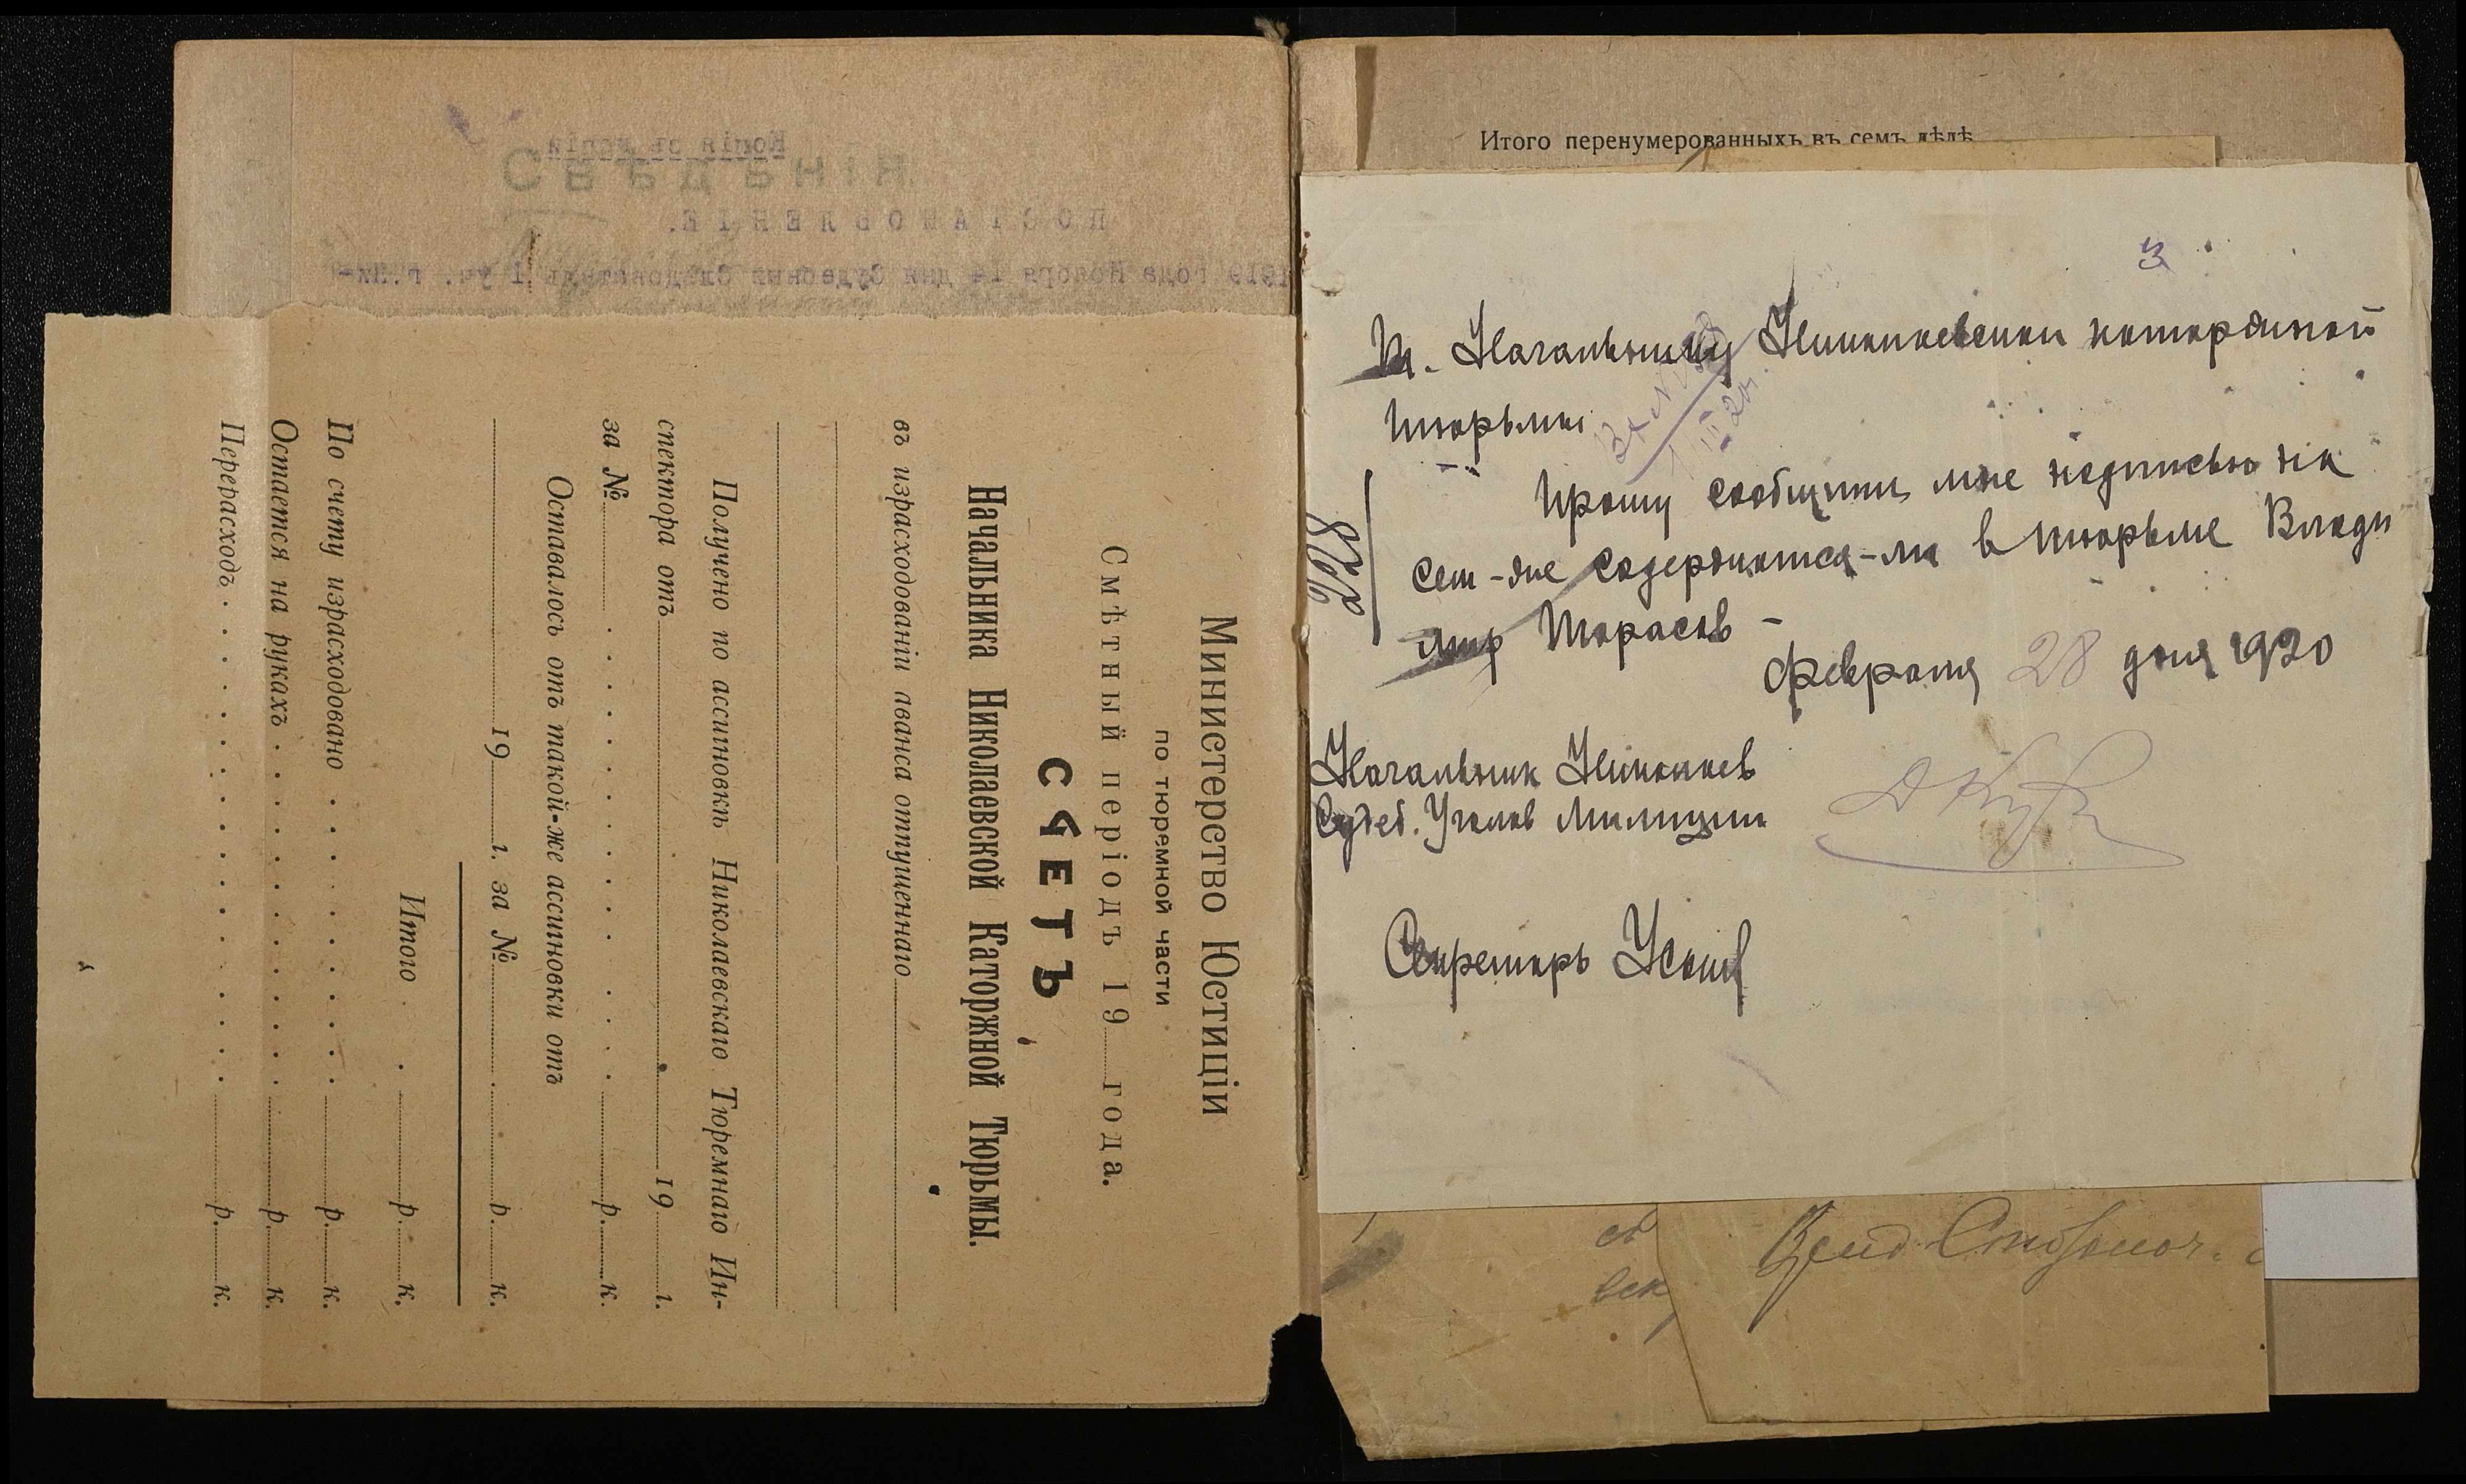 Копія съ копіи
Свѣденія
ПОСТАНОВЛЕНІЕ.
1919 года Ноября 14 дня Судебный Слѣдователь 1 уч. г.
Министерство Юстиціи
по тюремной части
Смѣтный періодъ 19 года.
СЧЕТЪ
Начальника Николаевской Каторжной Тюрьмы.
въ израсходованіи аванса отпущеннаго
Получено по ассигновкѣ Николаевскаго Тюремнаго Ин-
спектора отъ 19 г.
за № р. к.
Оставалось отъ такой-же ассигновки отъ
19 г. за № р. к.
Итого р. к.
По счету израсходовано р. к.
Остается на рукахъ р. к.
Перерасходъ р. к.
Итого перенумерованныхъ въ семъ дѣлѣ
3
Т. Начальнику Николаевской каторжной
тюрьмы
Вх №
III 20 г.
Прошу сообщить мне надписью на
сем-же содержится-ли в тюрьме Влади
мир Тарасов -
Февраля 28 дня 1920
Начальник Николаев
Судеб. Уголов Милиции
Секретарь
сь
век